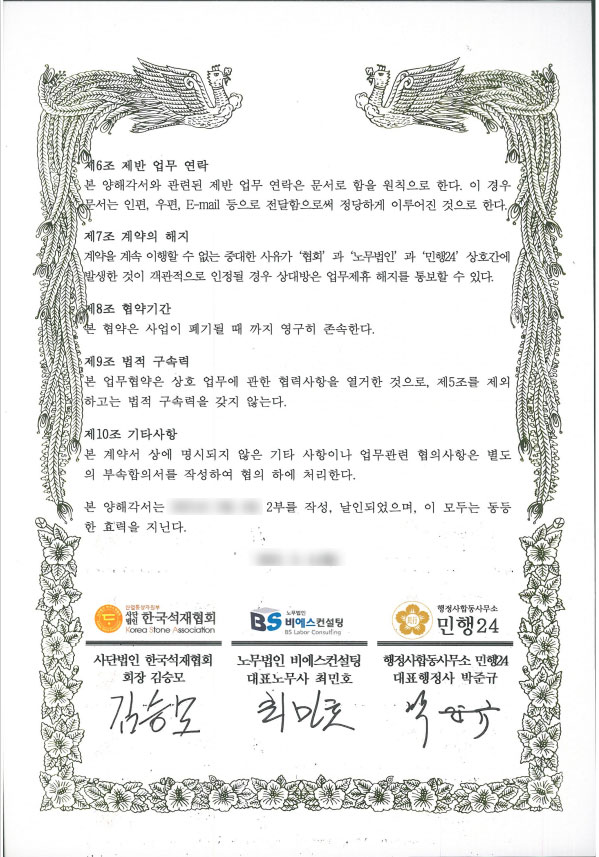 제6조 제반 업무 연락
본 양해각서와 관련된 제반 업무 연락은 문서로 함을 원칙으로 한다. 이 경우
문서는 인편, 우편, E-mail 등으로 전달함으로써 정당하게 이루어진 것으로 한다.
제7조 계약의 해지
계약을 계속 이행할 수 없는 중대한 사유가 '협회' 과 '노무법인' 과 '민행24' 상호간에
발생한 것이 객관적으로 인정될 경우 상대방은 업무제휴 해지를 통보할 수 있다.
제8조 협약기간
본 협약은 사업이 폐기될 때 까지 영구히 존속한다.
제9조 법적 구속력
본 업무협약은 상호 업무에 관한 협력사항을 열거한 것으로, 제5조를 제외
하고는 법적 구속력을 갖지 않는다.
제10조 기타사항
본 계약서 상에 명시되지 않은 기타 사항이나 업무관련 협의사항은 별도
의 부속합의서를 작성하여 협의 하에 처리한다.
본 양해각서는 2부를 작성, 날인되었으며, 이 모두는 동등
한 효력을 지닌다.
산업통상자원부
사단법인 한국석재협회
Korea Stone Association
노무법인
BS 비에스컨설팅
BS Labor Consulting
행정사합동사무소
민행24
사단법인 한국석재협회
회장 김승모
노무법인 비에스컨설팅
대표노무사 최민호
행정사합동사무소 민행24
대표행정사 박준규
김승모
최민호
박준규